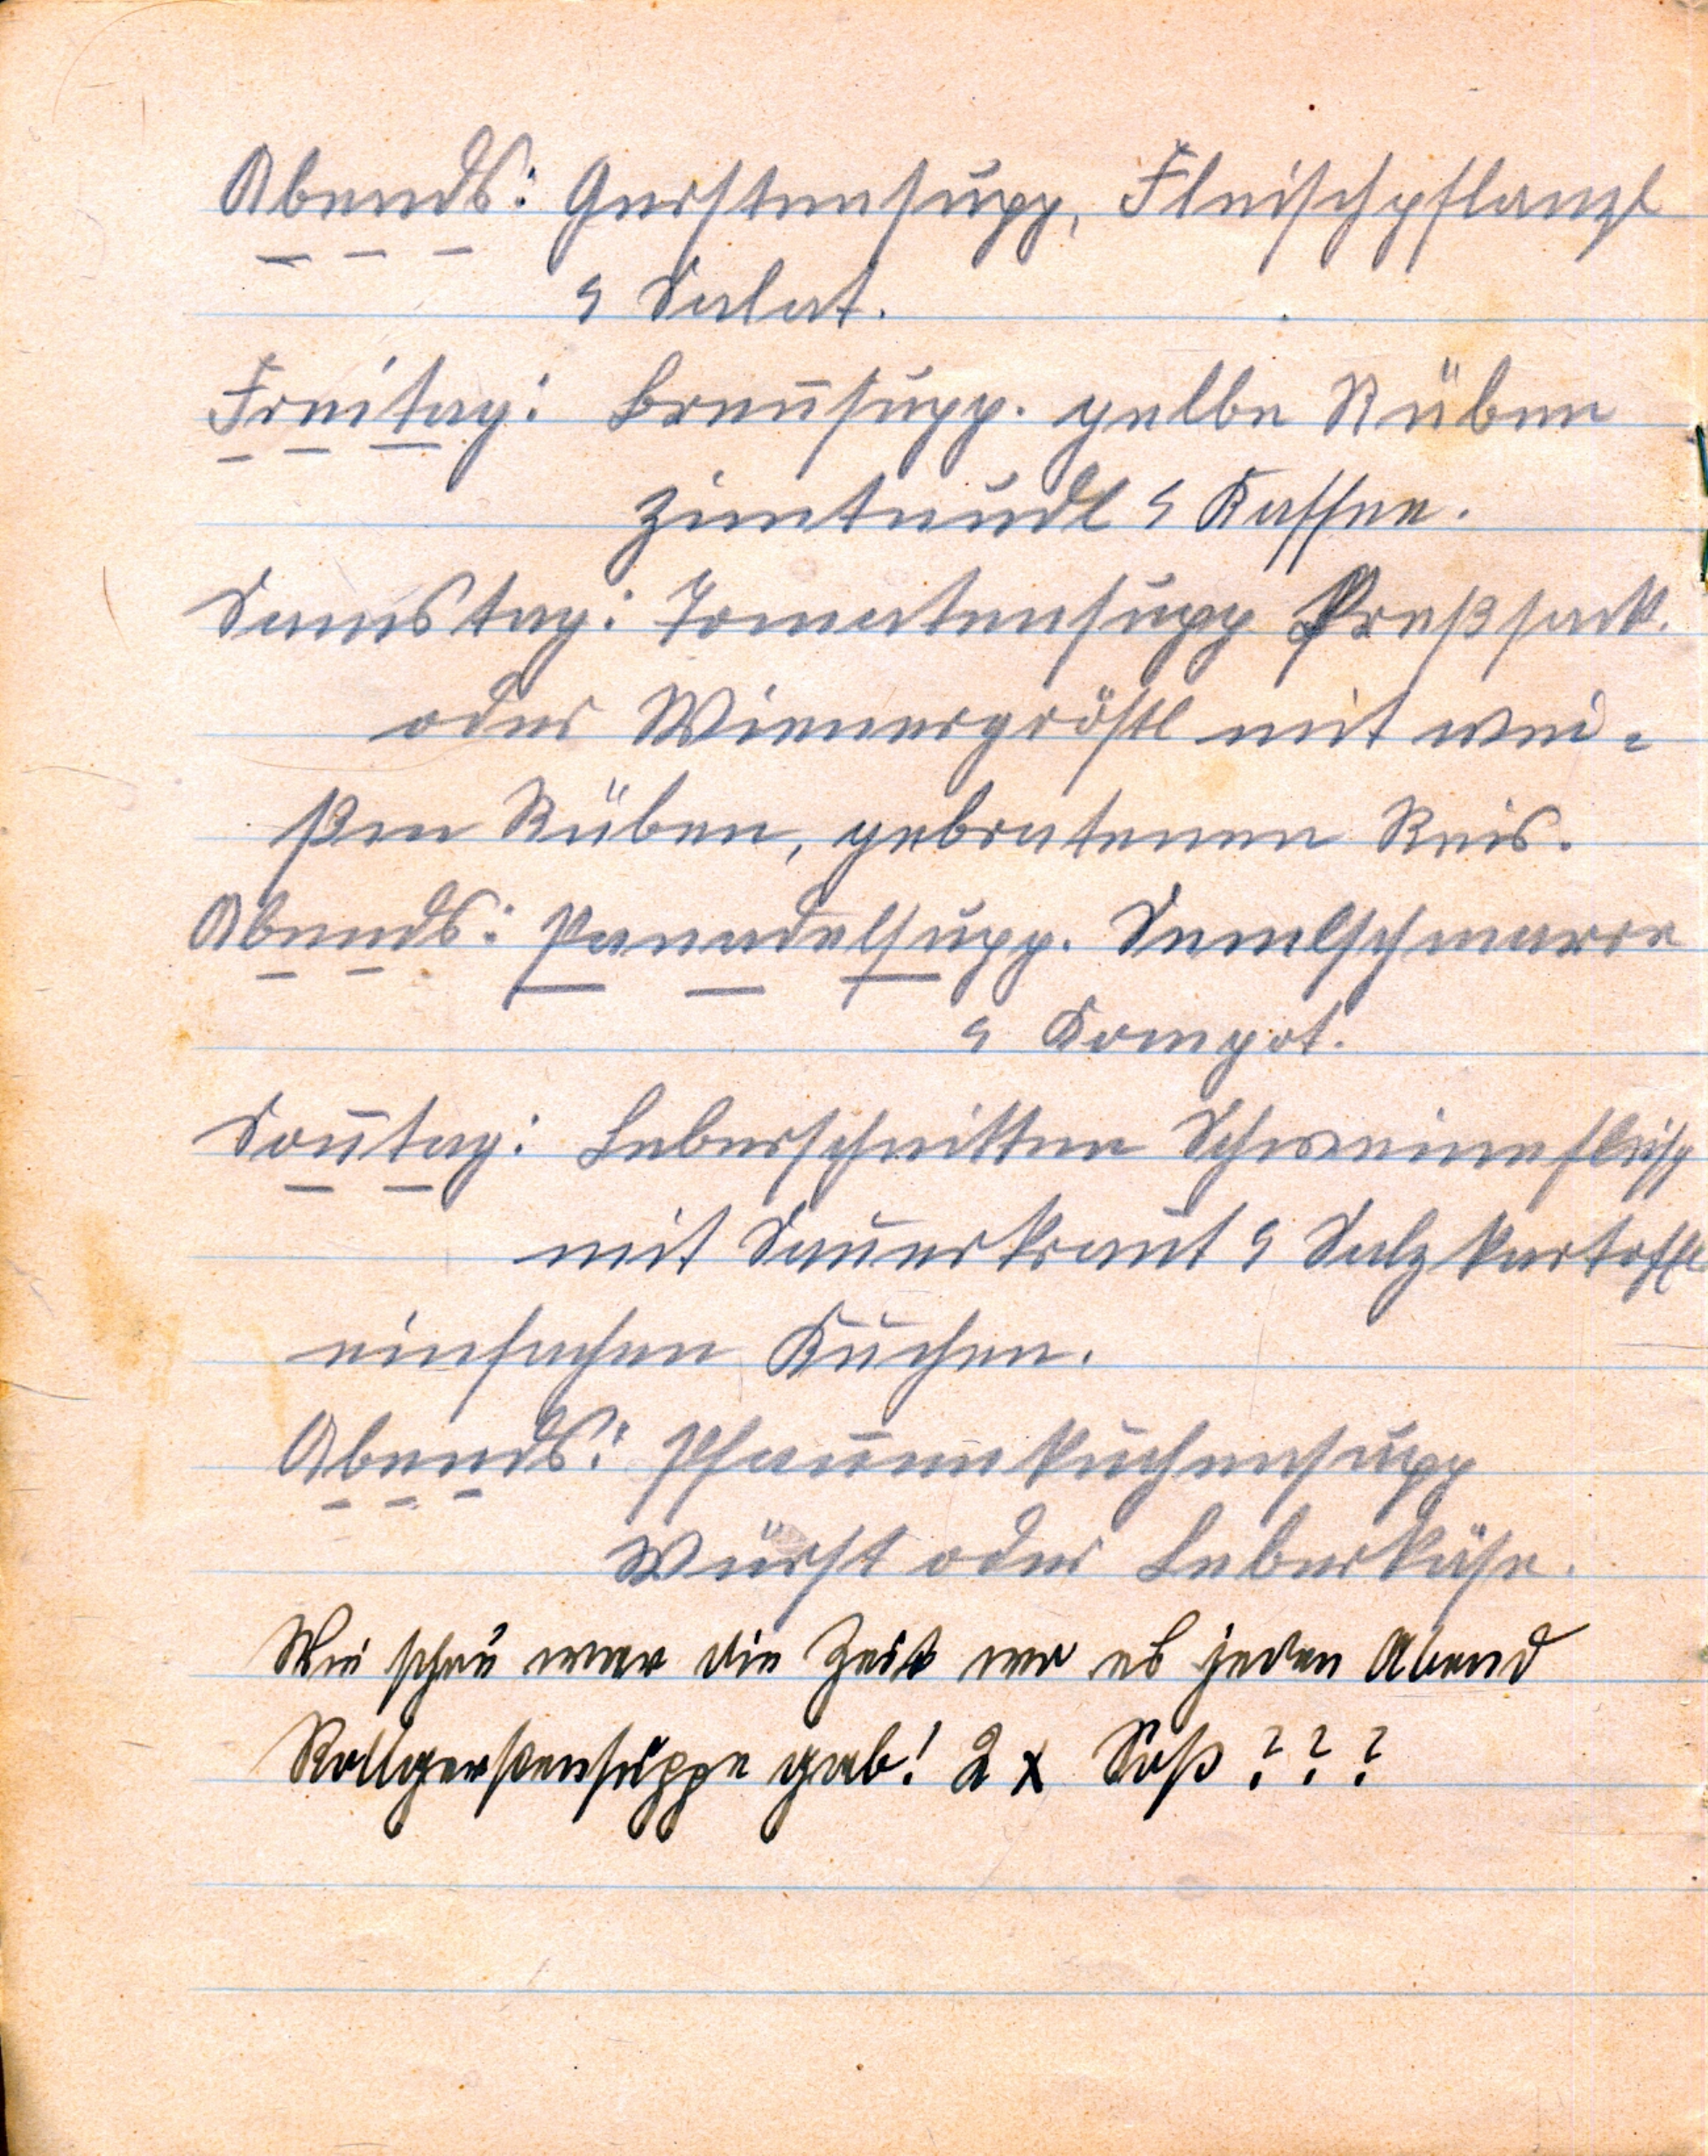 Abends: Gerstensupp, Fleischpflanzl
& Salat.
Freitag: Breñsupp. gelbe Rüben
Zimtnudl & Kaffee.
Samstag: Tomatensupp Preßsack.
oder Wienergröstl mit wei-
ßen Rüben, gebratenen Reis.
Abends: Panadelsupp. Semelschmarre
& Kompot.
Soñtag: Leberschnitten Schweinefleisch
mit Sauerkraut & Salzkartoffl
einfachen Kuchen.
Abends: Pfañenkuchensupp
Würst oder Leberkäse.
Wie schön war die Zeit wo es jeden Abend
Rollgerstensuppe gab! 2 x Soß ? ? ?